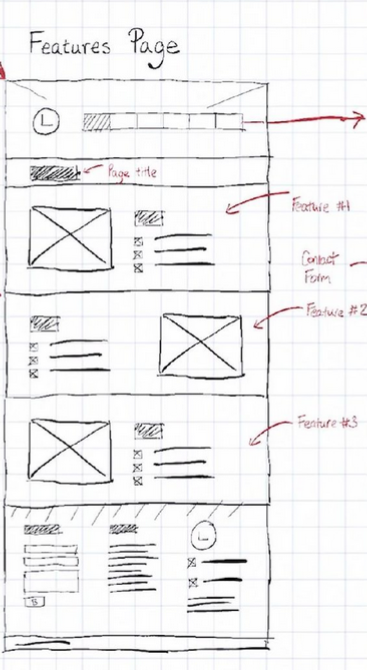 Features Page
L
Page title
Feature #1
Contact
Form
Feature #2
Feature #3
L
S